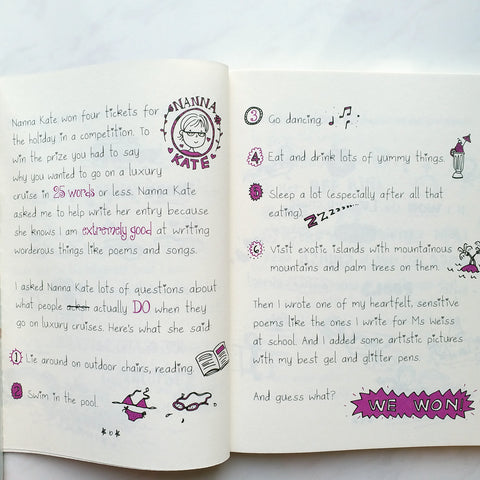 Nanna Kate won four tickets for
the holiday in a competition. To
win the prize you had to say
why you wanted to go on a luxury
cruise in 25 words or less. Nanna Kate
asked me to help write her entry because
she knows I am extremely good at writing
worderous things like poems and songs.
NANNA
KATE
I asked Nanna Kate lots of questions about
what people actually DO when they
go on luxury cruises. Here's what she said
1 Lie around on outdoor chairs, reading.
2 Swim in the pool.
6
3 Go dancing.
4 Eat and drink lots of yummy things.
5 Sleep a lot (especially after all that
eating). ZZzzzz.....
6 Visit exotic islands with mountainous
mountains and palm trees on them.
Then I wrote one of my heartfelt, sensitive
poems like the ones I write for Ms Weiss
at school. And I added some artistic pictures
with my best gel and glitter pens.
And guess what?
WE WON!